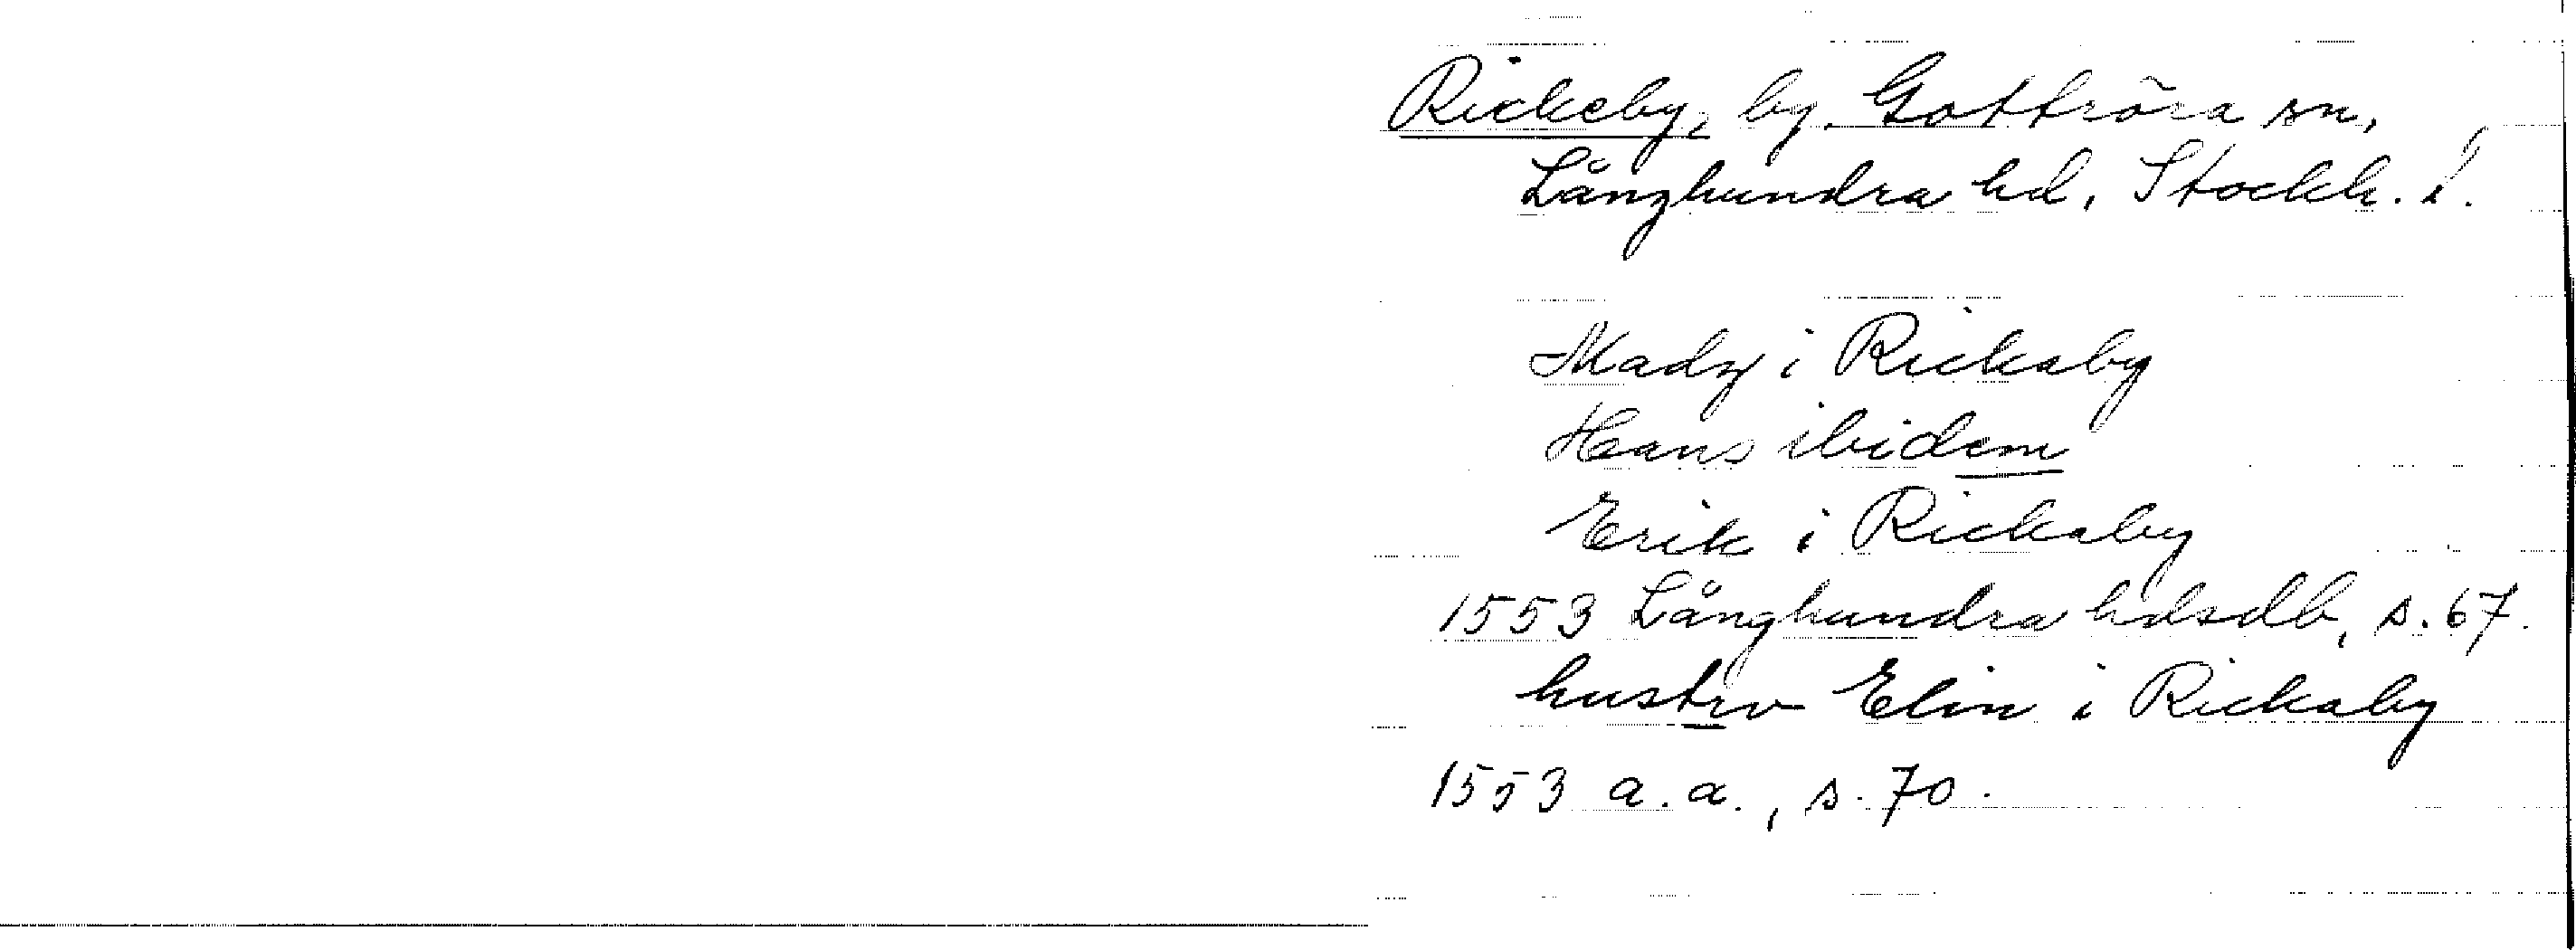 Rickeby, by. Gottröra sn,
Långhundra hd, Stockh. l.
Madz i Rickaby
Hans ibidem
Erik i Rickaby
1553 Långhundra hdsdb, s. 67.
hustrv Elin i Rickaby
1553 a. a., s. 70.